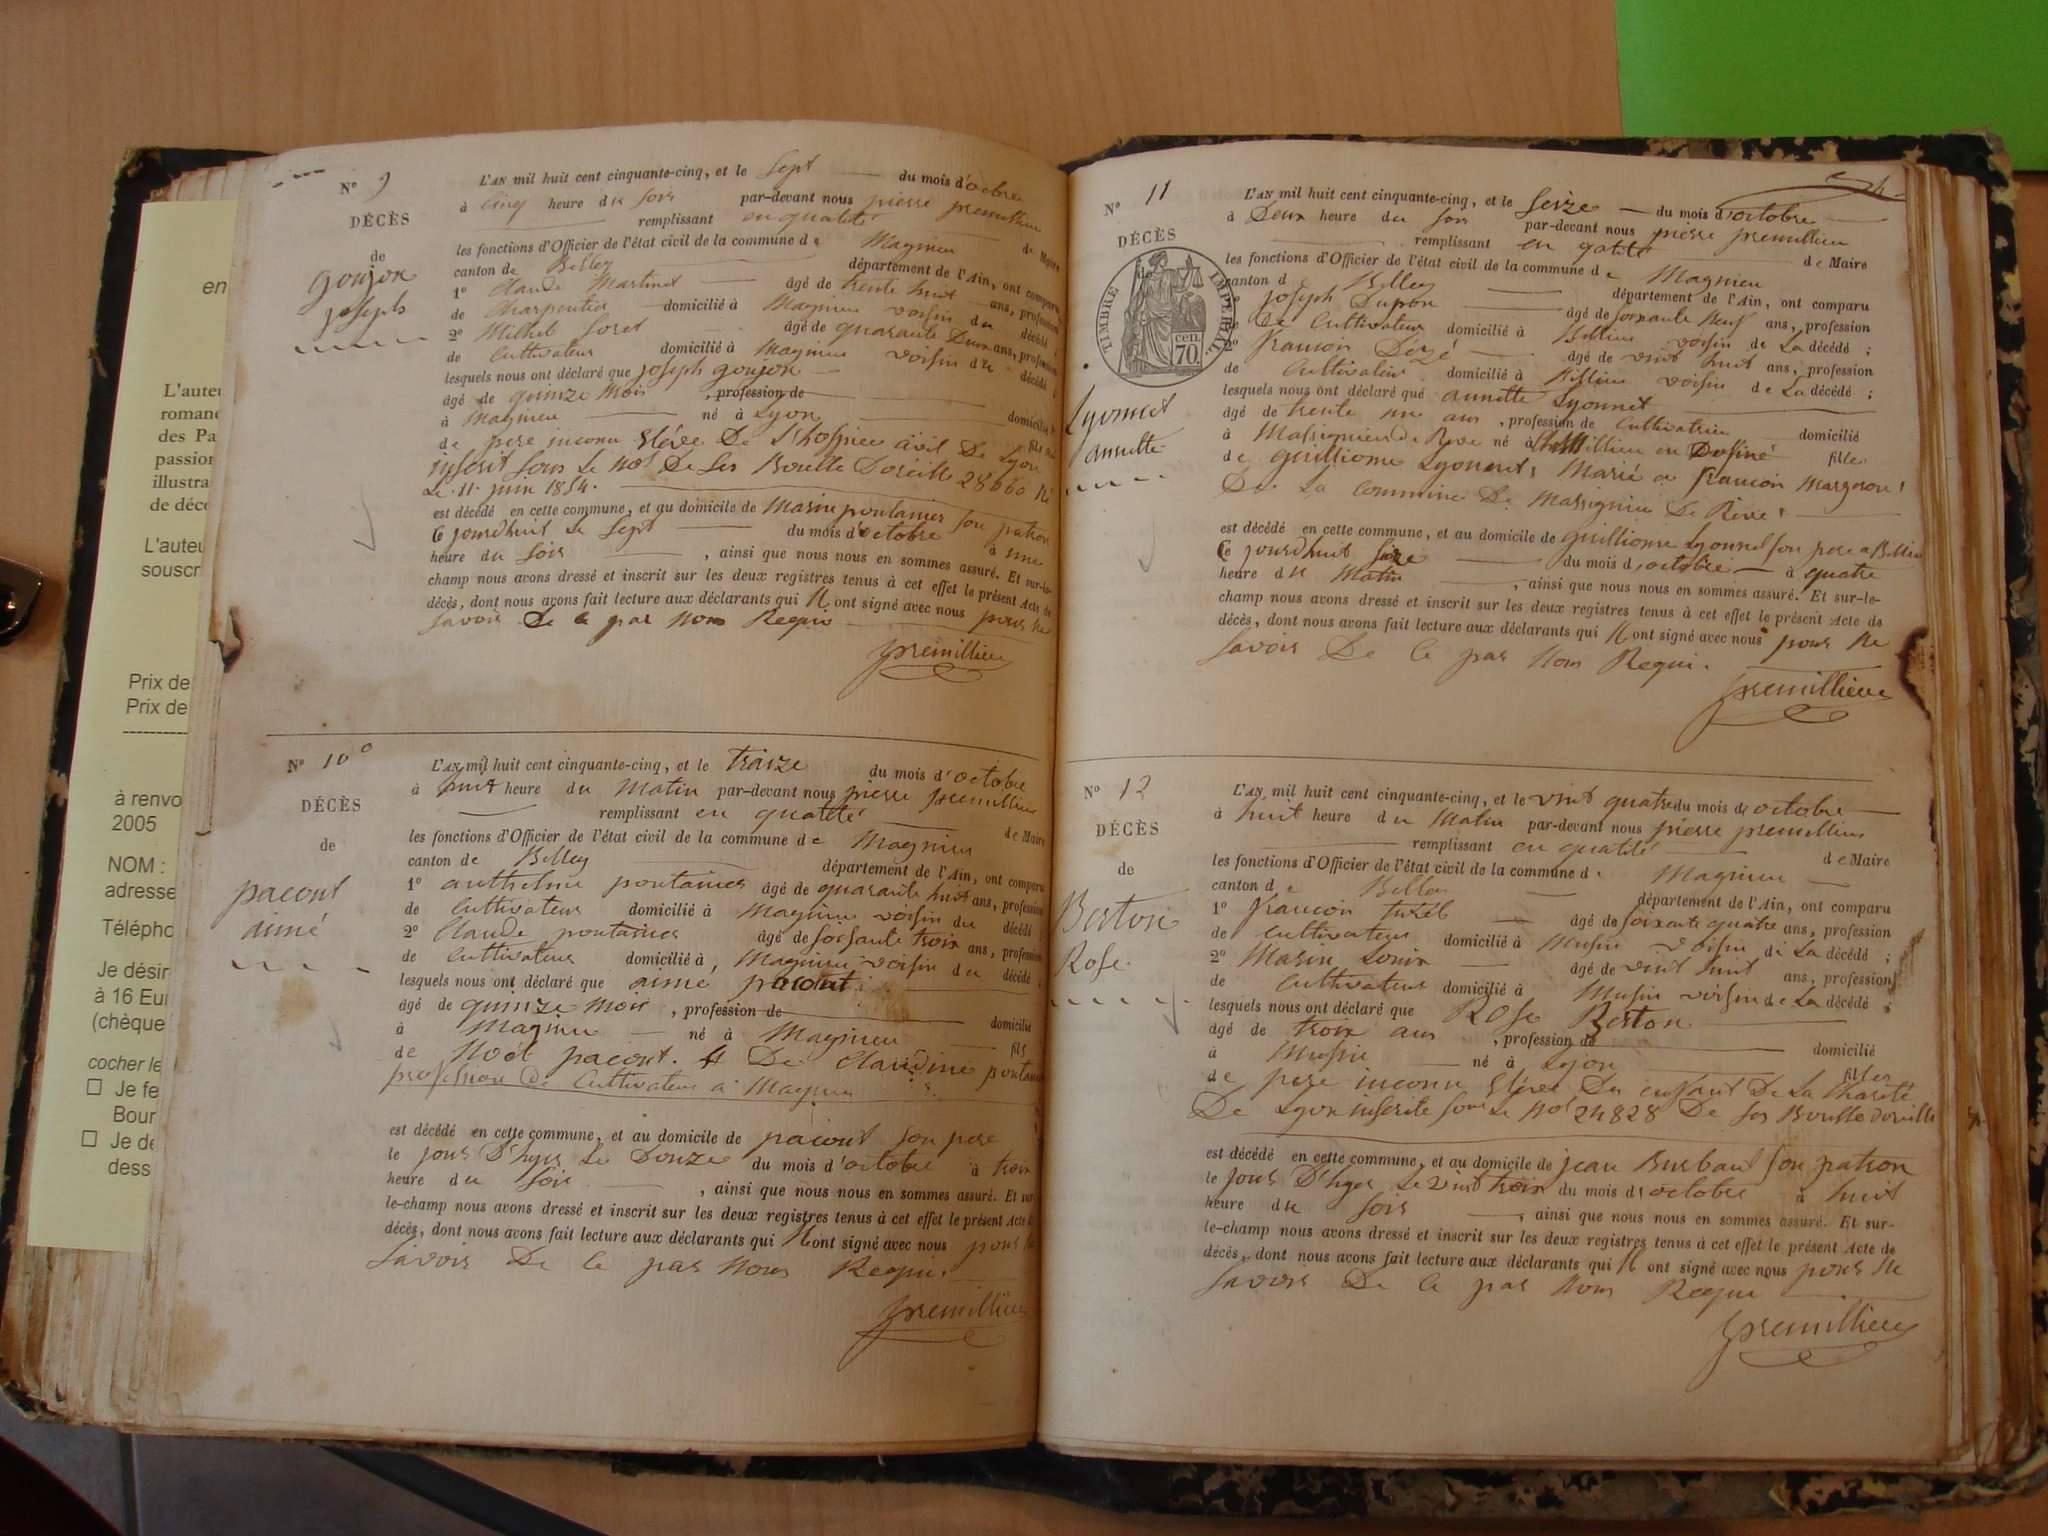 en
L'auteu
romanc
des Pa
passion
illustra
de déco
L'auteu
souscr
Prix de
Prix de
à renvo
2005
NOM :
adresse
Télépho
Je désir
à 16 Eur
(chèque
cocher le
Je fe
Bour
Je dé
dess
N° 9
DÉCÈS
de
goujon
joseph
L'AN mil huit cent cinquante-cinq, et le Sept du mois d'octobre
à cinq heure du soir par-devant nous pierre premillieu
remplissant en qualité de Maire
les fonctions d'Officier de l'état civil de la commune de Magnieu
canton de Belley département de l'Ain, ont comparu
1° Claude Martinet âgé de trente huit ans, profession
de Charpentier domicilié à Magnieu voisin du décédé ;
2° Michel âgé de quarante Deux ans, profession
de Cultivateur domicilié à Magnieu voisin du décédé ;
lesquels nous ont déclaré que joseph goujon
âgé de quinze mois , profession de
à Magnieu né à Lyon domicilié
de pere inconu Eléve De L'hospice civil De Lyon fils
inscrit sous Le No De Ses Boucle Doreille 28060 Né
Le 11 juin 1854.
est décédé en cette commune, et au domicile de Marin pontanier son patron
Ce jourdhuit Le Sept du mois d'octobre à une
heure du soir , ainsi que nous nous en sommes assuré. Et sur-le-
champ nous avons dressé et inscrit sur les deux registres tenus à cet effet le présent Acte de
décès, dont nous avons fait lecture aux déclarants qui N ont signé avec nous pour Ne
savoir De ce par Nous Requi
premillieu
N° 10
DÉCÈS
de
pacout
aimé
L'AN mil huit cent cinquante-cinq, et le traize du mois d'octobre
à heure du Matin par-devant nous pierre premillieu
remplissant en qualité de Maire
les fonctions d'Officier de l'état civil de la commune de Magnieu
canton de Belley département de l'Ain, ont comparu
1° anthelme pontanier âgé de quarante huit ans, profession
de Cultivateur domicilié à Magnieu voisin du décédé ;
2° Claude pontanier âgé de soisante trois ans, profession
de Cultivateur domicilié à Magnieu voisin du décédé ;
lesquels nous ont déclaré que aimé pacout
âgé de quinze mois , profession de
à Magnieu né à Magnieu domicilié
de Noël pacout. et De Claudine pontanier fils
profession de Cultivateur a Magnieu
est décédé en cette commune, et au domicile de pacout son pere
le jour D'hyer Le Douze du mois d'octobre à trois
heure du soir , ainsi que nous nous en sommes assuré. Et sur-
le-champ nous avons dressé et inscrit sur les deux registres tenus à cet effet le présent Acte de
décès, dont nous avons fait lecture aux déclarants qui N ont signé avec nous pour Ne
Savoir De ce par Nous Requi.
premillieu
N° 11
DÉCÈS
de
TIMBRE IMPERIAL
70 cen.
Lyonnet
annette
L'AN mil huit cent cinquante-cinq, et le Seize du mois d'octobre
à Deux heure du soir par-devant nous pierre premillieu
remplissant en qatité de Maire
les fonctions d'Officier de l'état civil de la commune de Magnieu
canton d Belley département de l'Ain, ont comparu
1° Joseph Dupon âgé de soixante Neuf ans, profession
de Cultivateur domicilié à Billieu voisin de La décédé ;
2° francoin Dézé âgé de vint huit ans, profession
de Cultivateur domicilié à Billieu voisin de La décédé ;
lesquels nous ont déclaré que annette Lyonnet
âgé de trente une ans , profession de Cultivatrice
à Massignieu de Rive né à en Dofiné domicilié
de guilliome Lyonnet, Marié a francoin Margaron, fille
De La commune De Massignieu De Rive,
est décédé en cette commune, et au domicile de guilliome Lyonnet son pere a Billieu
Ce jourdhuit Seize du mois d'octobre à quatre
heure du Matin , ainsi que nous nous en sommes assuré. Et sur-le-
champ nous avons dressé et inscrit sur les deux registres tenus à cet effet le présent Acte de
décès, dont nous avons fait lecture aux déclarants qui N ont signé avec nous pour Ne
Savoir De ce par Nous Requi.
premillieu
N° 12
DÉCÈS
de
Berton
Rose
L'AN mil huit cent cinquante-cinq, et le vint quatre du mois d'octobre
à huit heure du Matin par-devant nous pierre premillieu
remplissant en qualité de Maire
les fonctions d'Officier de l'état civil de la commune de Magnieu
canton de Belley département de l'Ain, ont comparu
1° francoin âgé de soixante quatre ans, profession
de Cultivateur domicilié à Musin voisin de La décédé ;
2° Marin Louis âgé de vint huit ans, profession
de Cultivateur domicilié à Musin voisin de La décédé ;
lesquels nous ont déclaré que Rose Berton
âgé de trois ans , profession de
à Musin né à Lyon domicilié
de pere inconu Eléve Des enfant De La Charité fille
De Lyon inscrite sous Le No 24828 De Ses Boucle doreille
est décédé en cette commune, et au domicile de jean Burbaud son patron
le jour D'hyer Le vint trois du mois d'octobre à huit
heure du soir , ainsi que nous nous en sommes assuré. Et sur-
le-champ nous avons dressé et inscrit sur les deux registres tenus à cet effet le présent Acte de
décès, dont nous avons fait lecture aux déclarants qui N ont signé avec nous pour Ne
Savoir De ce par Nous Requi
premillieu